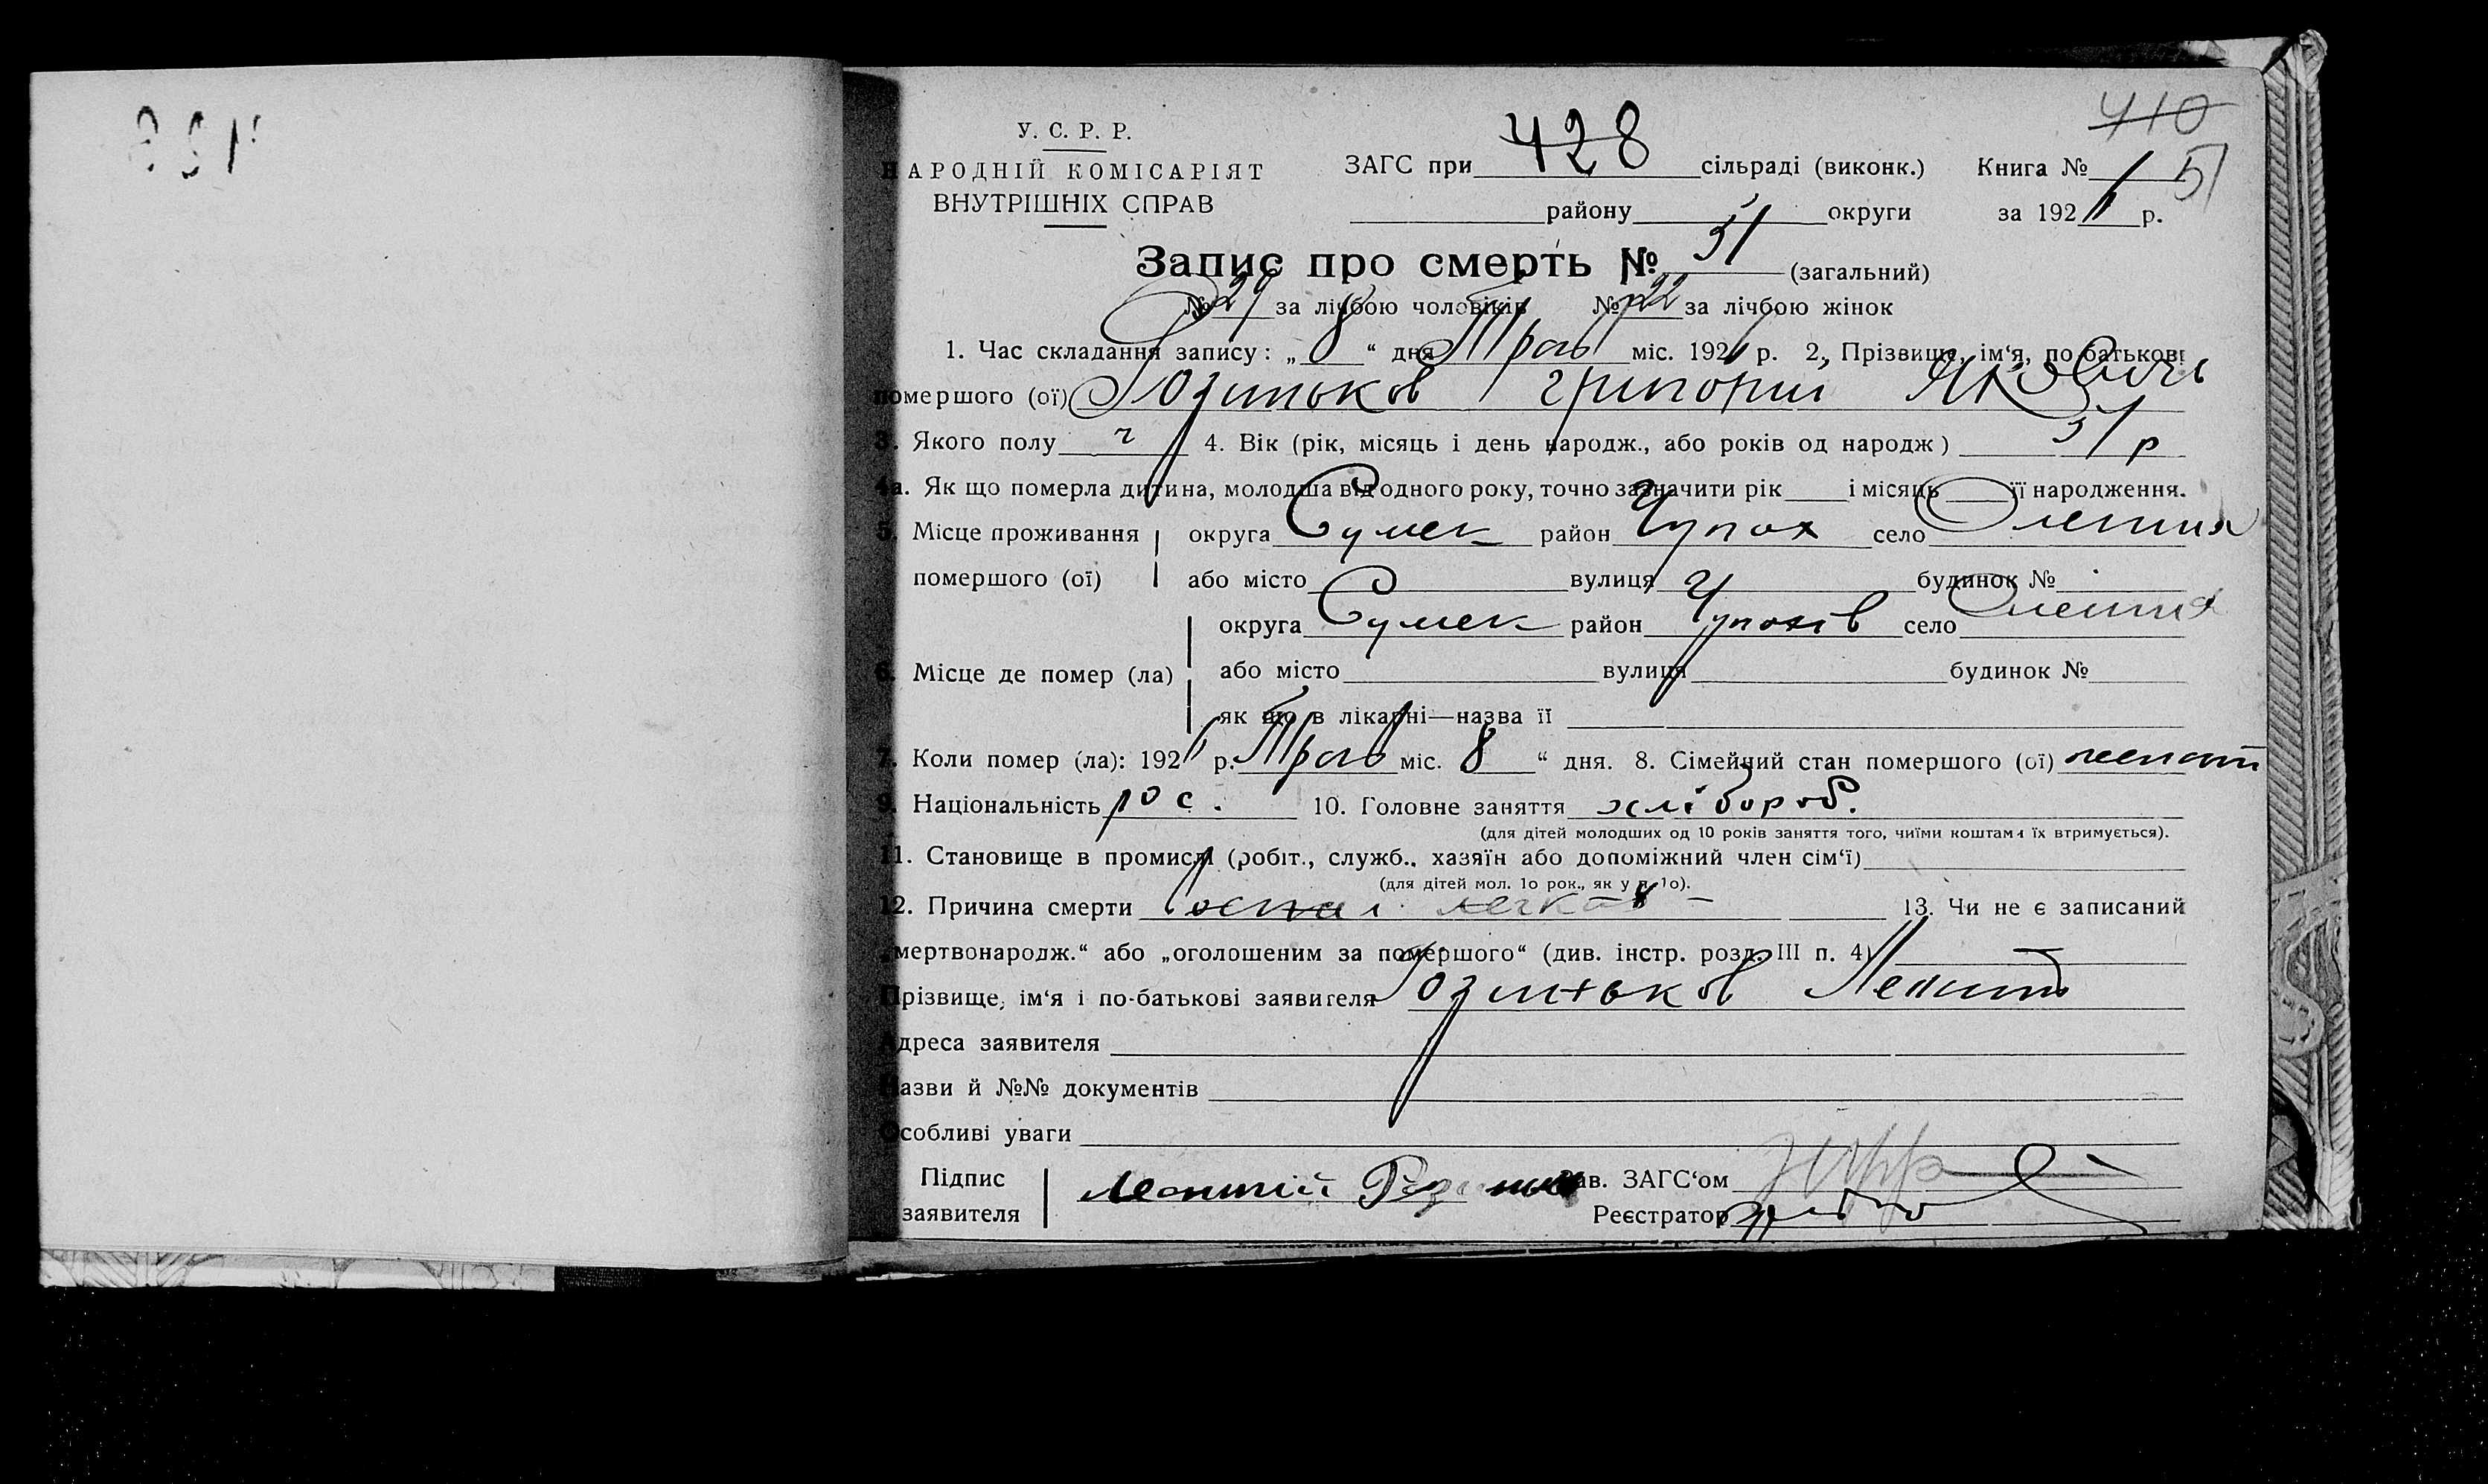 410
У. С. Р. Р.
НАРОДНІЙ КОМІСАРІЯТ
ВНУТРІШНІХ СПРАВ
ЗАГС при 428 сільраді (виконк.) Книга № 1 51
району округи за 192 р.
Запис про смерть № 51 (загальний)
№ 29 за лічбою чоловіків № 22 за лічбою жінок
1. Час складання запису: „ 8 “ дня Трав міс. 192 р. 2, Прізвище, ім‘я, по-батькові
помершого (ої) Розиньков Григорий Якович
3. Якого полу ч 4. Вік (рік, місяць і день народж., або років од народж) 51 р
4а. Як що померла дитина, молодша від одного року, точно зазначити рік і місяць її народження.
5. Місце проживання округа Сумск район Чупах село
помершого (ої) або місто вулиця будинок №
округа Сумск район Чупахів село
6. Місце де помер (ла) або місто вулиця будинок №
як що в лікарні—назва її
7. Коли помер (ла): 192 р. Трав міс. 8 “ дня. 8. Сімейний стан помершого (ої) женат
9. Національність рос. 10. Головне заняття хлібороб.
(для дітей молодших од 10 років заняття того, чиїми коштами їх втримується).
11. Становище в промислі (робіт., служб., хазяїн або допоміжний член сім‘ї)
(для дітей мол. 1о рок., як у п. 1о).
12. Причина смерти легких 13. Чи не є записаний
„мертвонародж.“ або „оголошеним за помершого“ (див. інстр. розд. III п. 4)
Прізвище, ім‘я і по-батькові заявителя Розиньков
Адреса заявителя
Назви й №№ документів
Особливі уваги
Підпис
заявителя
Зав. ЗАГС‘ом
Реєстратор